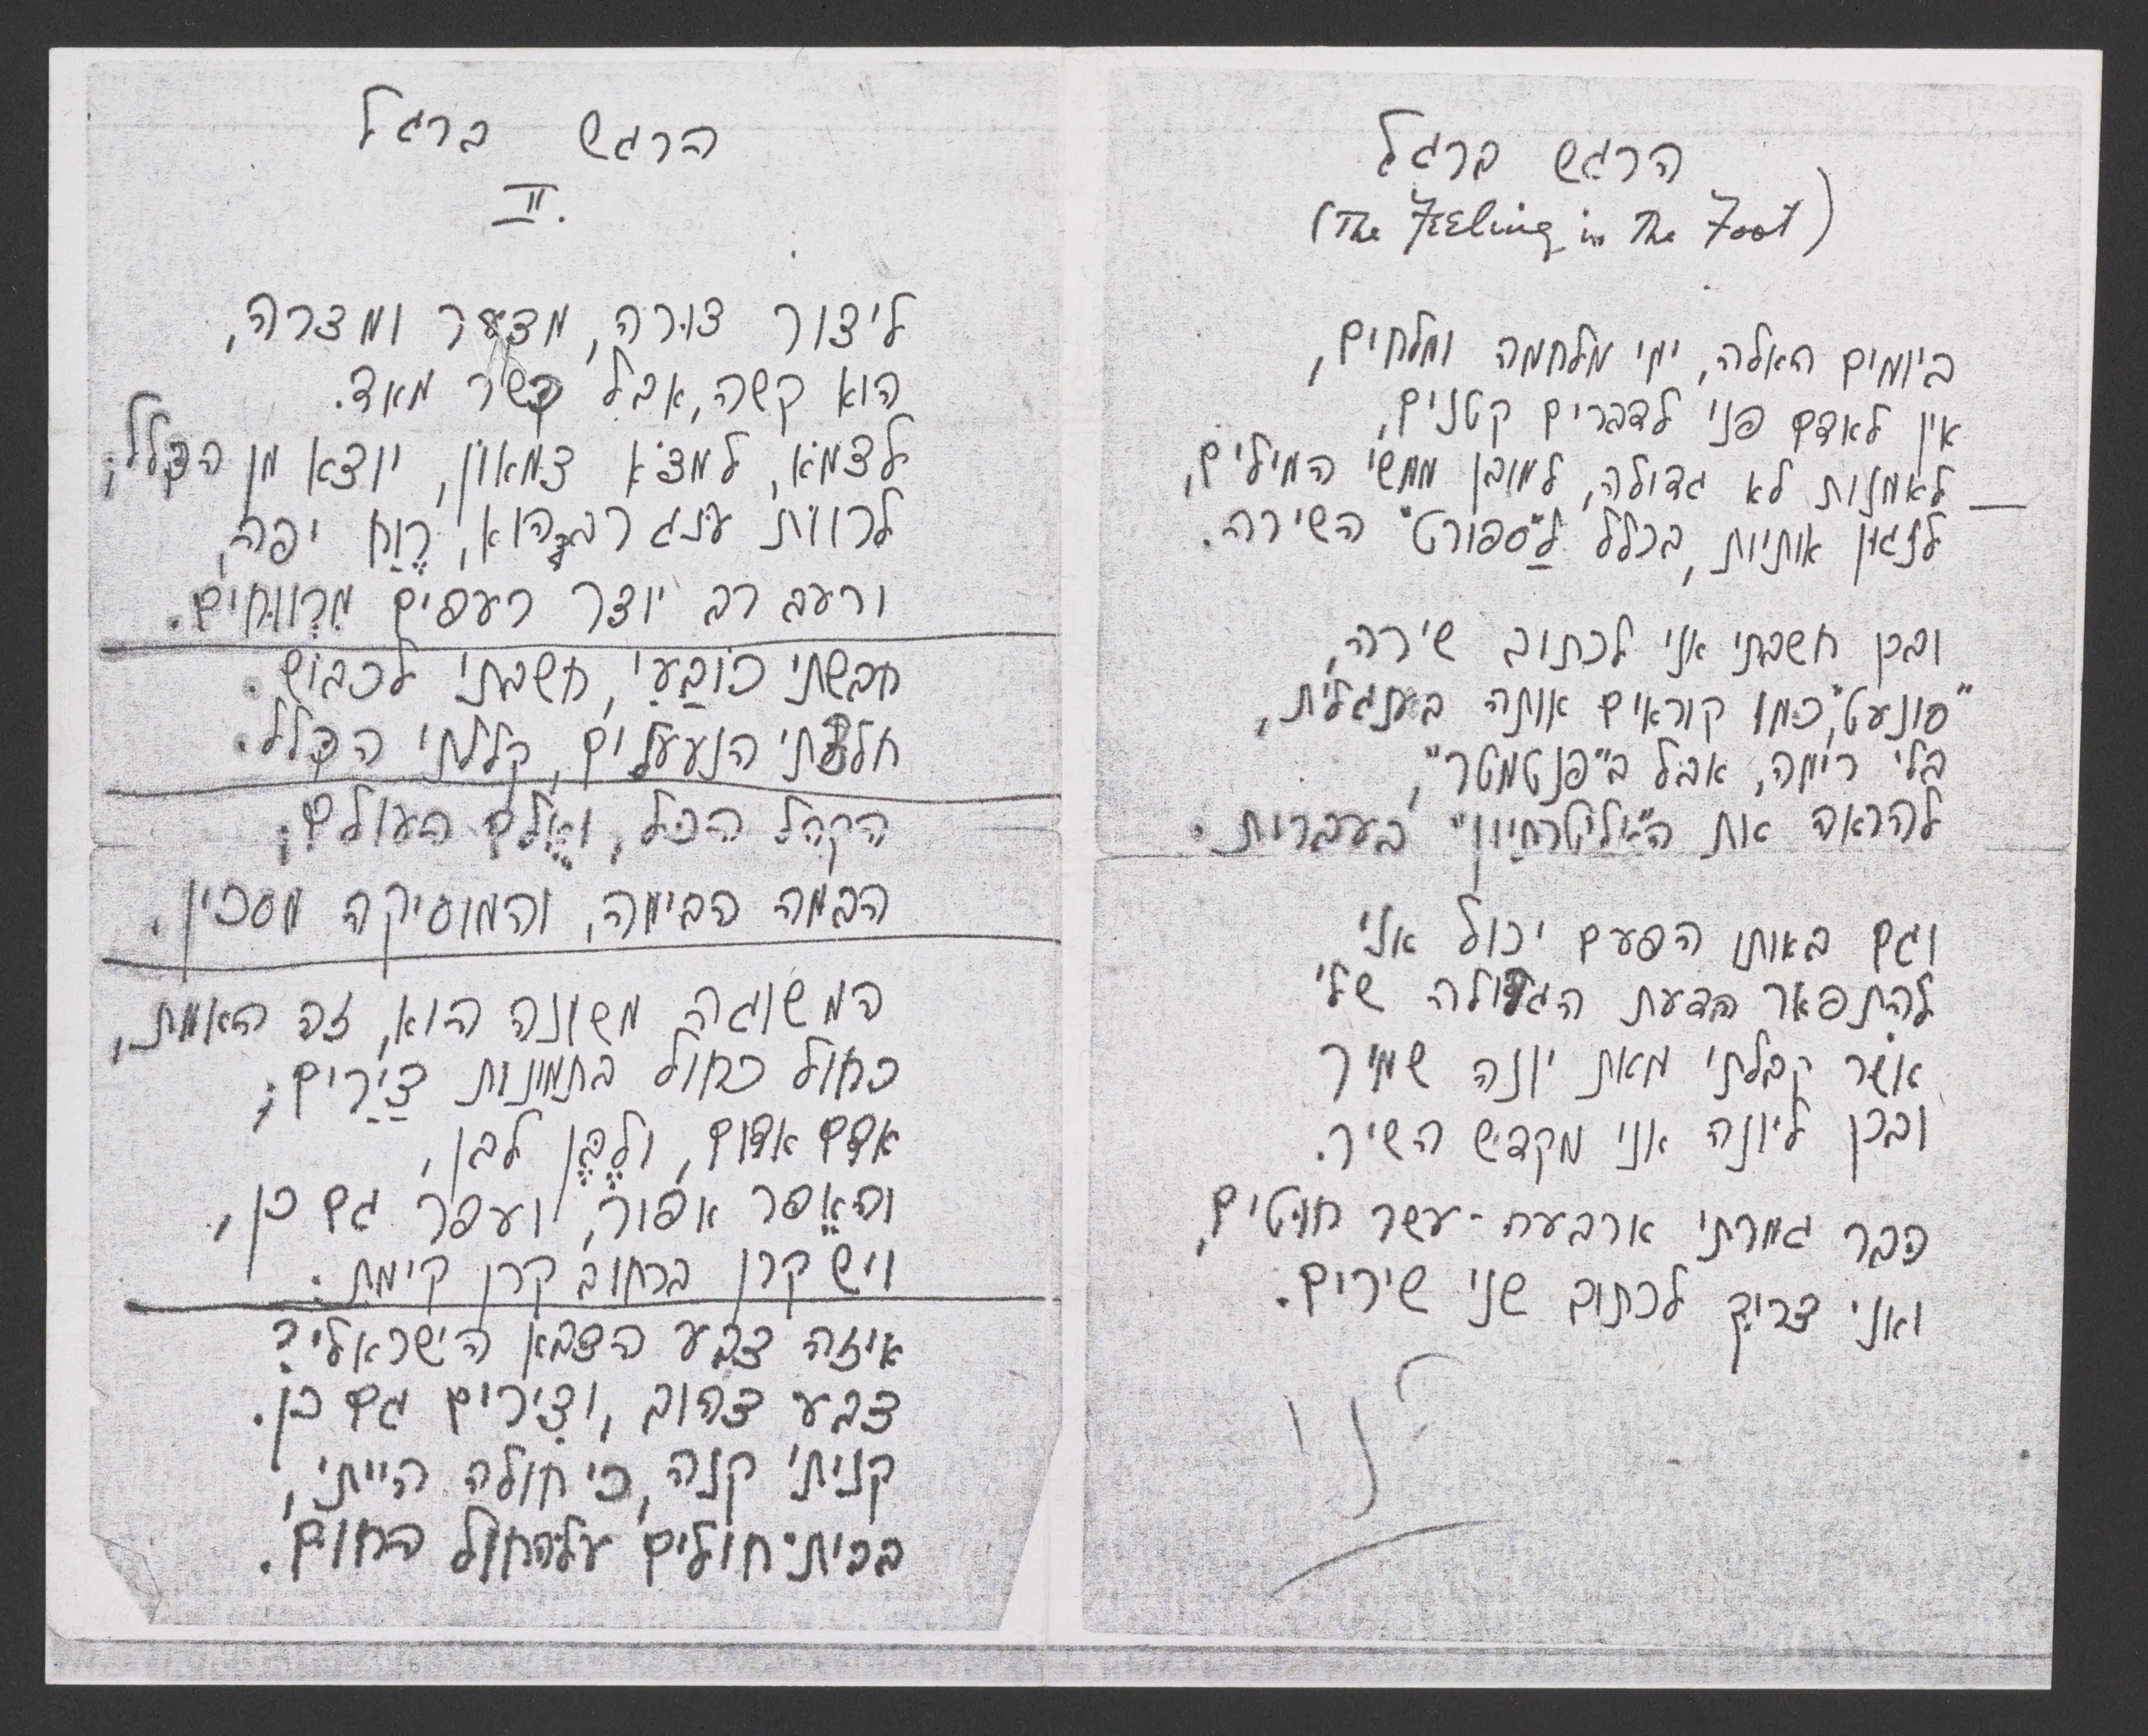 הרגש ברגל
(The Feeling in The Foot)
ביומים האלה, ימי מלחמה ומלחים,
אין לאדם פני לדברים קטנים,
לאמנות לא גדולה, למובן ממשי המילים,
לנגון אותיות, בכלל לַ"ספורט" השירה.
ובכן חשבתי אני לכתוב שירה,
"סונעט", כמו קוראים אותה בענגלית,
בלי רימה, אבל ב"פנטמטר",
להראה את בעברית.
וגם באותו הפעם יכול אני
להתפאר הדעת הגדולה שלי
אשר קבלתי מאת יונה שמיר
ובכן ליונה אני מקדיש השיר.
כבר גמרתי ארבעה-עשר חוטים,
ואני צריך לכתוב שני שירים.
הרגש ברגל
II.
ליצור צורה, מצער ומצרה,
הוא קשה, אבל כשר מאד.
לצמא, למצא צמאון, יוצא מן הכלל;
לרוות ענג רב הוא, רֶוַח יפה,
ורעב רב יוצר רעפים מְרֻוָחים.
חבשתי כובַעִי, חשבתי לכבוש.
חלצתי הנעלים, קללתי הכלל.
הקהל הכל, ואֻלם העולם;
הבמה הבימה, והמוסיקה מסכין.
המשוגה משונה הוא, זה האמת,
כחול כחול בתמונות צַיַרים;
אדם אדום, ולֶבֶן לבן,
והאֵפר אפור, ועפר גם כן,
ויש קרן ברחוב קרן קימת.
איזה צבע הצבא הישראלי?
צבע צהוב, וצירים גם כן.
קניתי קנה, כי חולה הייתי,
בבית-חולים על החול החום.